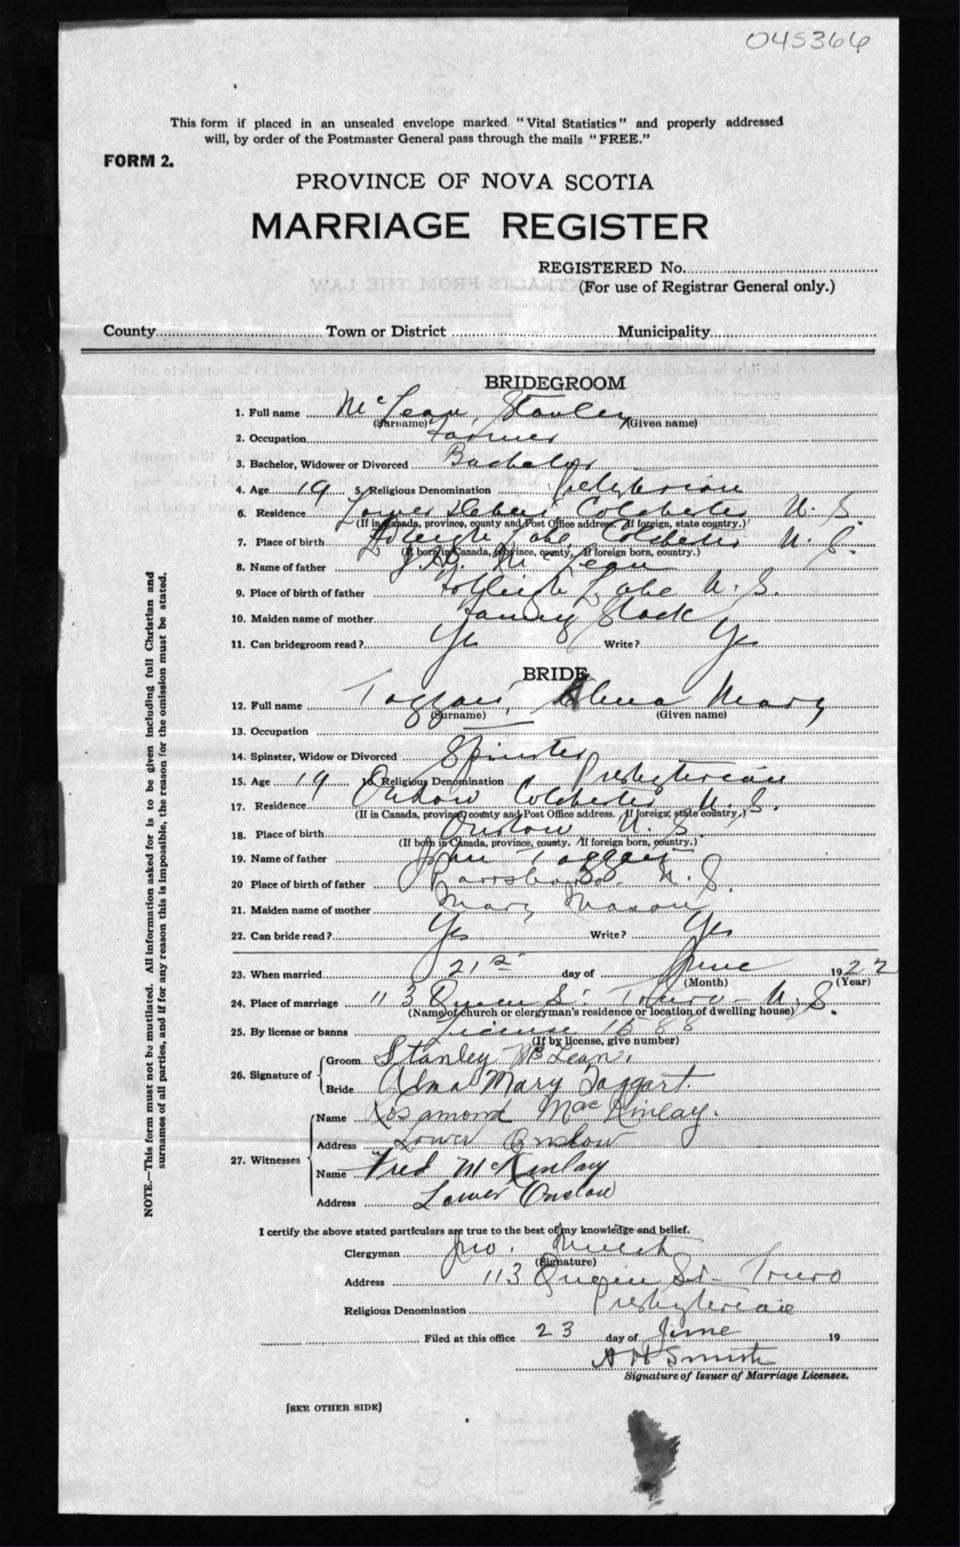 045366
This form if placed in an unsealed envelope marked "Vital Statistics" and properly addressed
will, by order of the Postmaster General pass through the mails "FREE."
FORM 2.
PROVINCE OF NOVA SCOTIA
MARRIAGE REGISTER
REGISTERED No.
(For use of Registrar General only.)
County Town or District Municipality
BRIDEGROOM
1. Full name McLean, Stanley
(Surname) (Given name)
2. Occupation Farmer
3. Bachelor, Widower or Divorced Bachelor
4. Age 19 5. Religious Denomination
6. Residence Lower Colchester N. S.
(If in Canada, province, county and Post Office address. If foreign, state country.)
7. Place of birth Lake Colchester N. S.
(If born in Canada, province, county. If foreign born, country.)
8. Name of father McLean
9. Place of birth of father Lake N. S.
10. Maiden name of mother
11. Can bridegroom read? Yes Write? Yes
BRIDE
12. Full name Taggart, Alma Mary
(Surname) (Given name)
13. Occupation
14. Spinster, Widow or Divorced Spinster
15. Age 19 16. Religious Denomination Presbyterian
17. Residence Onslow Colchester N. S.
(If in Canada, province, county and Post Office address. If foreign, state country.)
18. Place of birth Onslow N. S.
(If born in Canada, province, county. If foreign born, country.)
19. Name of father John Taggart
20 Place of birth of father Parrsboro N. S.
21. Maiden name of mother Mary Mason
22. Can bride read? Yes Write? Yes
23. When married 21st day of June 1922
(Month) (Year)
24. Place of marriage 113 Queen St. Truro - N. S.
(Name of church or clergyman's residence or location of dwelling house)
25. By license or banns License 1588
(If by license, give number)
26. Signature of Groom Stanley McLean.
Bride Alma Mary Taggart.
27. Witnesses Name Rosamond MacKinlay.
Address Lower Onslow
Name Fred McKinlay
Address Lower Onslow
I certify the above stated particulars are true to the best of my knowledge and belief.
Clergyman Jno.
(Signature)
Address 113 Queen St - Truro
Religious Denomination Presbyterian
Filed at this office 23 day of June 19
A H Smith
Signature of Issuer of Marriage Licenses.
[SEE OTHER SIDE]
NOTE.—This form must not be mutilated. All information asked for is to be given including full Christian and
surnames of all parties, and if for any reason this is impossible, the reason for the omission must be stated.